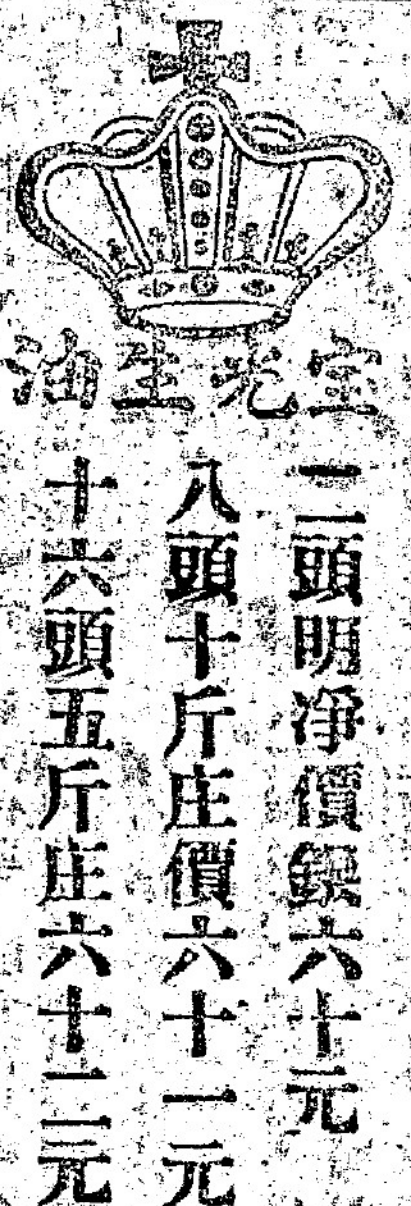 宝光生油
二頭明淨價銀六十元
八頭十斤庄價六十一元
十六頭五斤庄六十二元